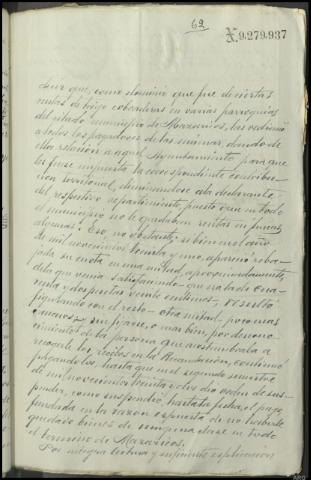 62
X.9.279.937
Decir que, como dominio que fué de ciertas
rentas de trigo cobraderas en varias parroquias
del citado municipio de Mazaricos, las redimió
a todos los pagadores de las mismas, dando de
ella relación a aquel Ayuntamiento para que
les fuese impuesta la correspondiente contribu-
ción territorial, eliminándose a la declarante
del respectivo repartimiento, puesto que en todo
el municipio no le quedaban rentas ni fincas
algunas. Eso, no obstante, si bien en el año
de mil novecientos treinta y uno, apareció reba-
jada su cuota en una mitad, aproximadamente,
de la que venía satisfaciendo que era la de cua-
renta y dos pesetas veinte céntimos, resultó
figurando con el resto - otra mitad, poco mas o
menos - sin fijarse, o mas bien, por descono-
cimiento de la persona que acostumbraba a
recogerle los recibos en la Recaudación, continuó
pagándolos, hasta que en el segundo semestre
de mil novecientos treinta y dos dio orden de sus-
pender, como suspendió hasta la fecha, el pago,
fundada en la razón expuesta de no haberle
quedado bienes de ninguna clase en todo
el término de Mazaricos.
Por íntegra lectura y suficiente explicación